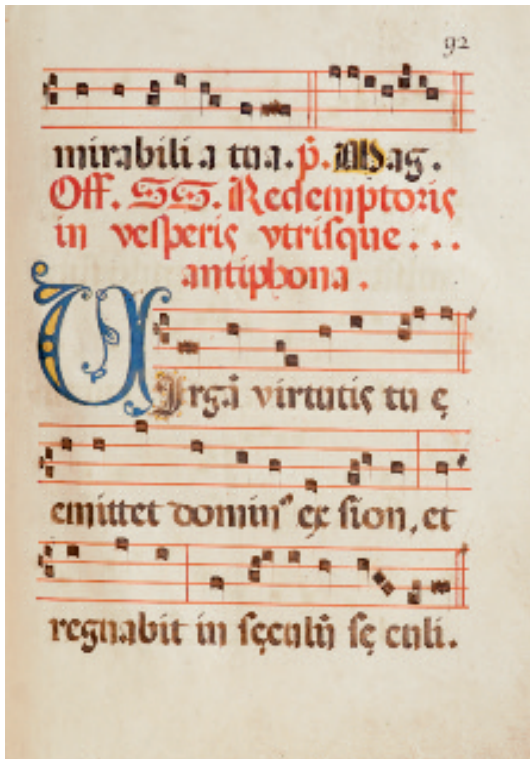 92
mirabilia tua. p̃. Mag.
Off. SS. Redemptoris
in vesperis vtrisque...
antiphona.
VIrgã virtutis tu ę
emittet domin⁹ ex sion, et
regnabit in sęculũ sę culi.